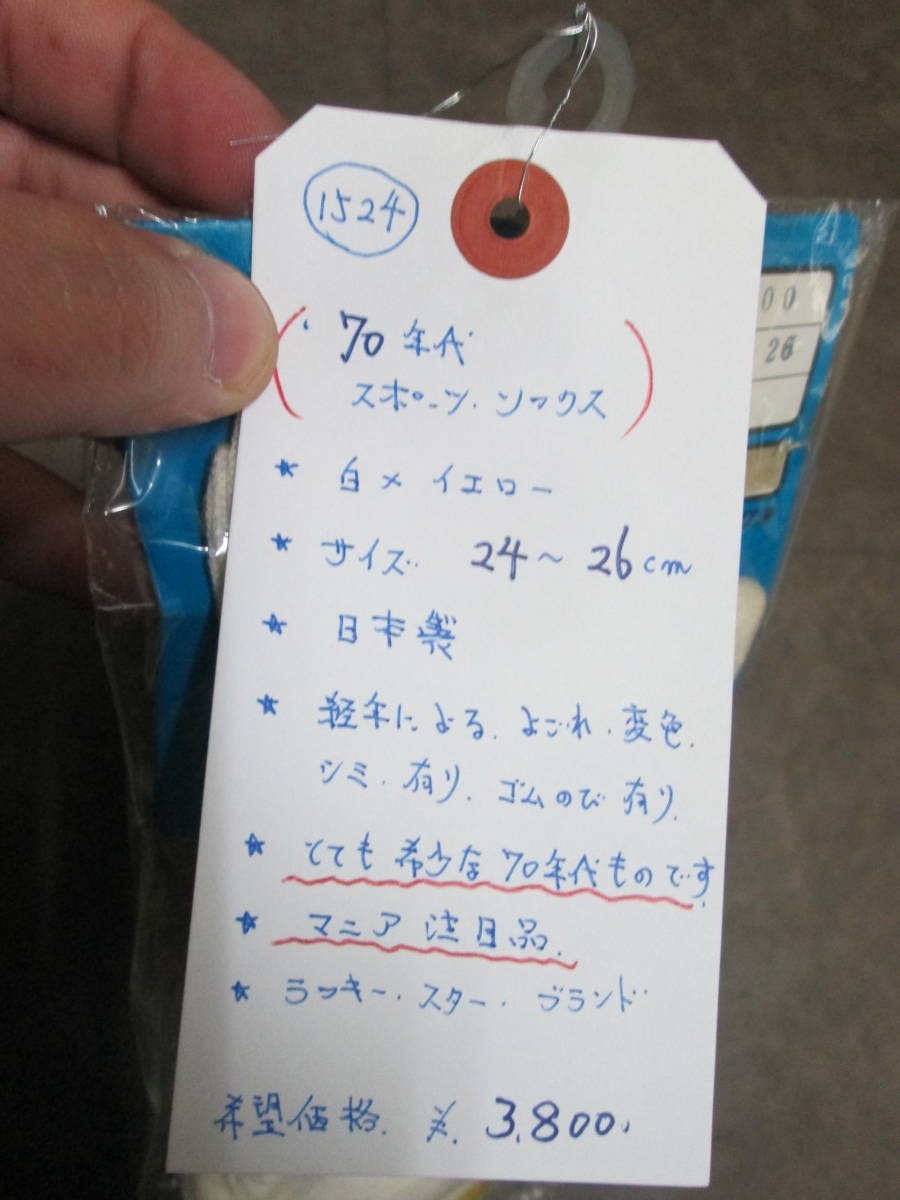 1524
70年代
スポーツ.ソックス
★ 白×イエロー
★ サイズ. 24~26cm
★ 日本製
★ 経年による.よごれ.変色.
シミ.有り.ゴムのび有り.
★ とても希少な70年代ものです.
★ マニア注目品.
★ ラッキー.スター.ブランド
希望価格. ¥.3,800.
00
26